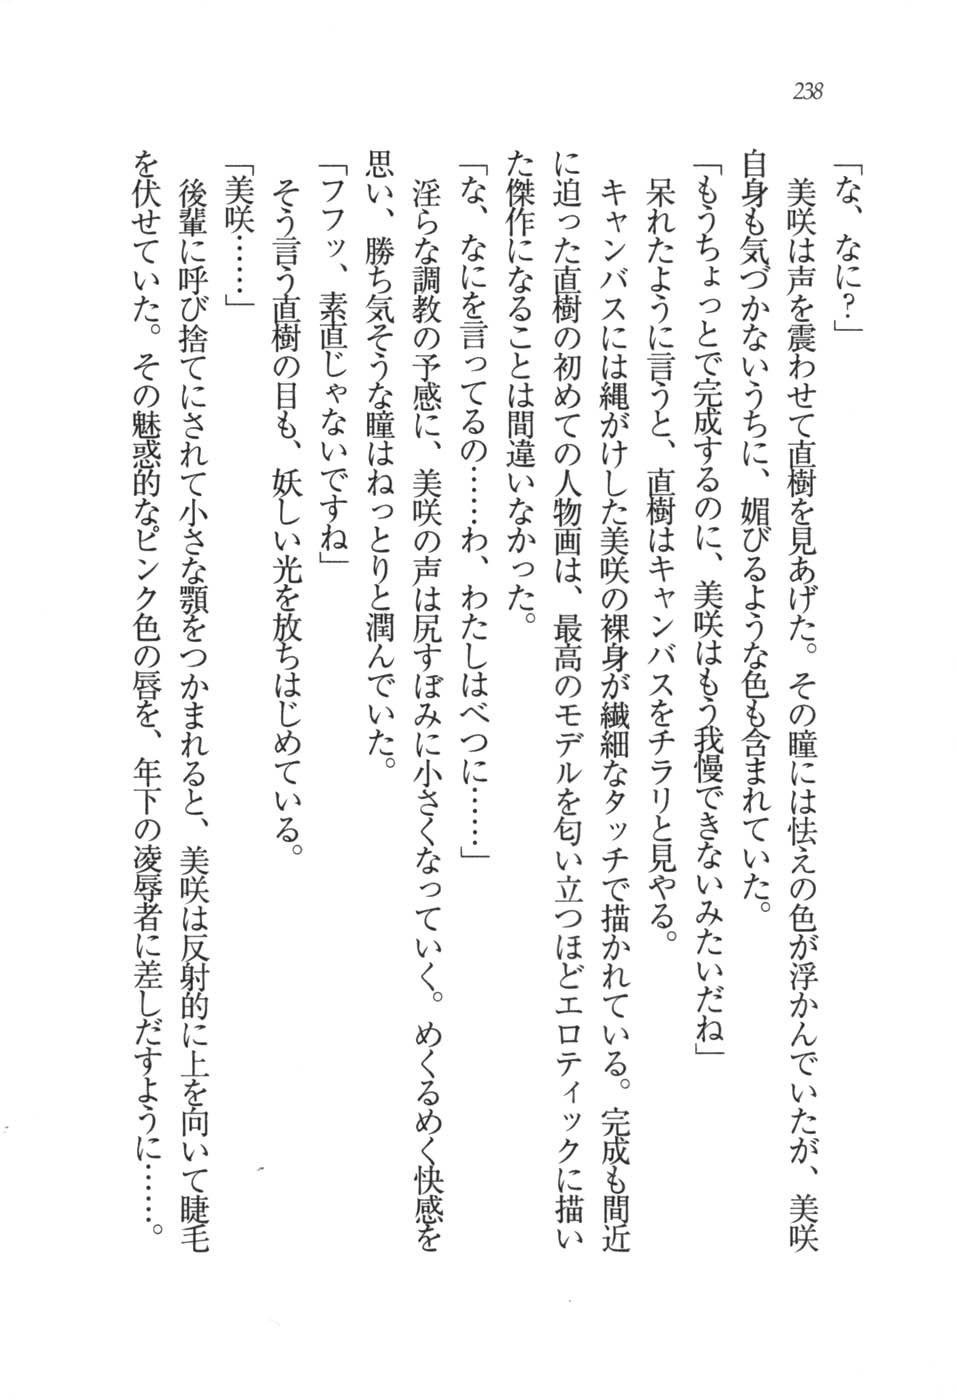 238
「な、なに？」
　美咲は声を震わせて直樹を見あげた。その瞳には怯えの色が浮かんでいたが、美咲
自身も気づかないうちに、媚びるような色も含まれていた。
「もうちょっとで完成するのに、美咲はもう我慢できないみたいだね」
　呆れたように言うと、直樹はキャンバスをチラリと見やる。
　キャンバスには縄がけした美咲の裸身が繊細なタッチで描かれている。完成も間近
に迫った直樹の初めての人物画は、最高のモデルを匂い立つほどエロティックに描い
た傑作になることは間違いなかった。
「な、なにを言ってるの……わ、わたしはべつに……」
　淫らな調教の予感に、美咲の声は尻すぼみに小さくなっていく。めくるめく快感を
思い、勝ち気そうな瞳はねっとりと潤んでいた。
「フフッ、素直じゃないですね」
　そう言う直樹の目も、妖しい光を放ちはじめている。
「美咲……」
　後輩に呼び捨てにされて小さな顎をつかまれると、美咲は反射的に上を向いて睫毛
を伏せていた。その魅惑的なピンク色の唇を、年下の凌辱者に差しだすように……。